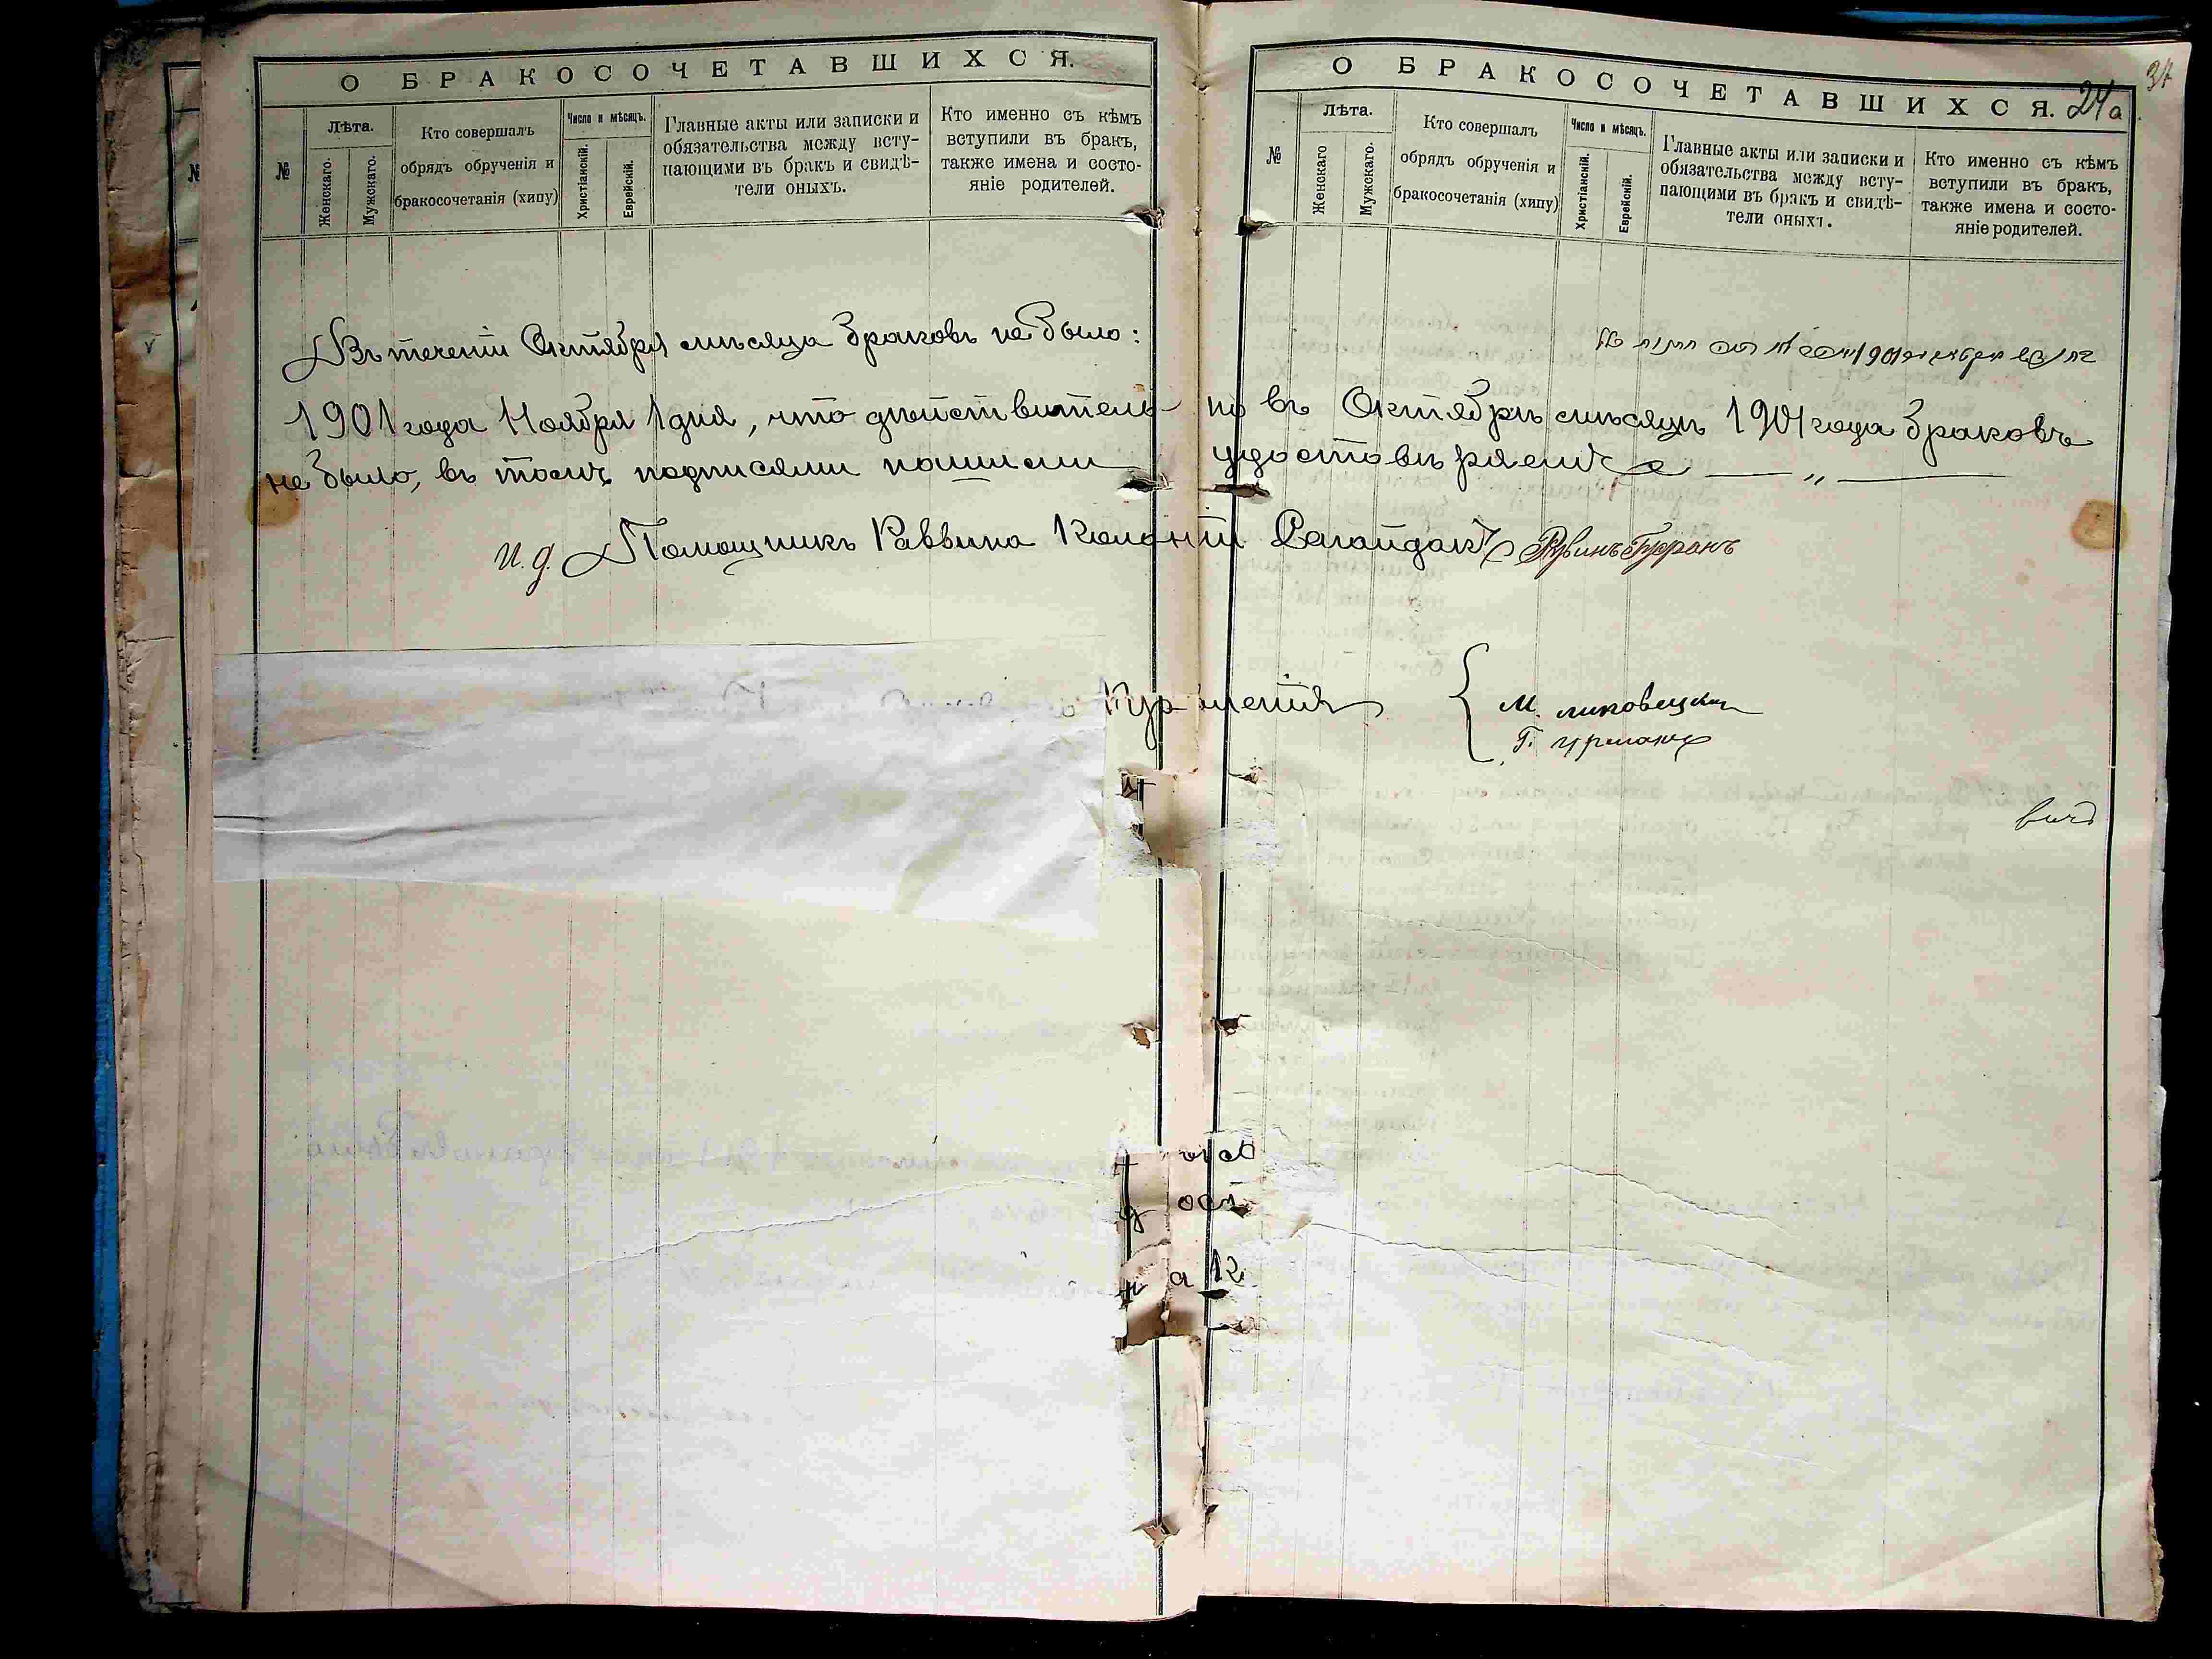 О БРАКОСОЧЕТАВШИХСЯ.
№
Лѣта.
Женскаго.
Мужскаго.
Кто совершалъ
обрядъ обрученія и
бракосочетанія (хипу)
Число и мѣсяцъ.
Христіанскій.
Еврейскій.
Главные акты или записки и
обязательства между всту-
пающими въ бракъ и свидѣ-
тели оныхъ.
Кто именно съ кѣмъ
вступили въ бракъ,
также имена и состо-
яніе родителей.
О БРАКОСОЧЕТАВШИХСЯ.
24а
№
Лѣта.
Женскаго
Мужскаго.
Кто совершалъ
обрядъ обрученія и
бракосочетанія (хипу)
Число и мѣсяцъ.
Христіанскій.
Еврейскій.
Главные акты или записки и
обязательства между всту-
пающими въ бракъ и свидѣ-
тели оныхъ.
Кто именно съ кѣмъ
вступили въ бракъ,
также имена и состо-
яніе родителей.
Въ теченіи Октября мѣсяца браковъ не было:
1901 года Ноября 1 дня, что дѣйствитель- но въ Октябрѣ мѣсяцѣ 1901 года браковъ
не было, въ томъ подписями нашими удостовѣряемъ
И. д. Помощникъ Раввина Колоніи Сагайдакъ
М.
Г.
вичъ